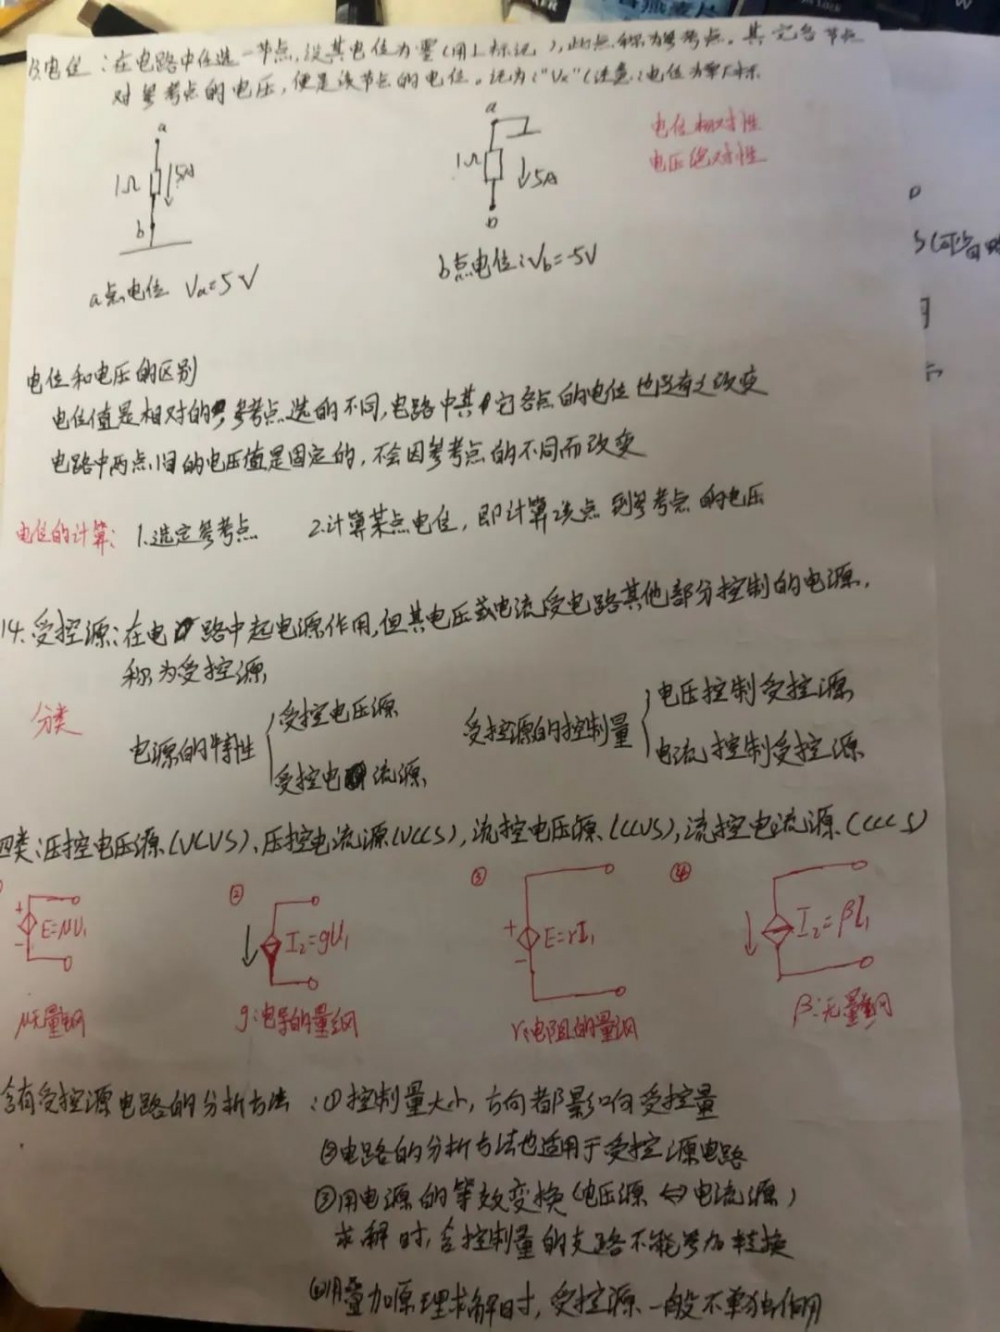 电位：在电路中任选一节点，设其电位为零（用⊥标记），此点称为参考点。其它各节点
对参考点的电压，便是该节点的电位。记为："Vx"（注意：电位为单下标
a
a
电位相对性
电压绝对性
1Ω
5A
1Ω
5A
b
b
a点电位 Va=5V
b点电位：Vb=-5V
电位和电压的区别
电位值是相对的 参考点选的不同，电路中其它各点的电位也
改变
电路中两点间的电压值是固定的，不会因参考点的不同而改变
电位的计算：1.选定参考点 2.计算某点电位，即计算该点到参考点的电压
14.受控源：在电路中起电源作用，但其电压或电流受电路其他部分控制的电源，
称为受控源
分类
电源的特性
受控电压源
受控电流源
受控源的控制量
电压控制受控源
电流控制受控源
四类：压控电压源（VCVS），压控电流源（VCCS），流控电压源（CCVS），流控电流源（CCCS）
+ E=μU₁ -
μ无量纲
② I₂=gU₁
g：电导的量纲
③ + E=rI₁ -
r：电阻的量纲
④ I₂=βI₁
β：无量纲
含有受控源电路的分析方法：①控制量大小，方向都影响受控量
②电路的分析方法也适用于受控源电路
③用电源的等效变换（电压源⇔电流源）
求解时，含控制量的支路不能参加转换
④用叠加原理求解时，受控源一般不单独作用